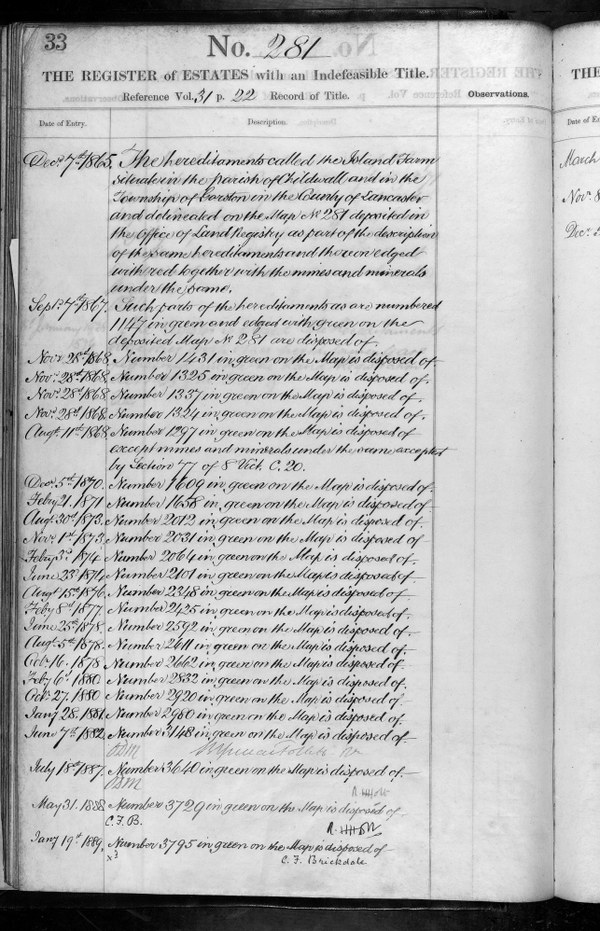 33
No. 281
THE REGISTER of ESTATES with an Indefeasible Title.
Reference Vol. 31 p. 22 Record of Title.
Observations.
Date of Entry.
Description.
Decr. 7th 1865. The hereditaments called the Island Farm
situate in the parish of Childwall and in the
Township of Garston in the County of Lancaster
and delineated on the Map No 281 deposited in
the Office of Land Registry as part of the description
of the same hereditaments and thereon edged
with red together with the mines and minerals
under the same.
Septr. 7th 1867. Such parts of the hereditaments as are numbered
1147 in green and edged with green on the
deposited Map No 281 are disposed of
Novr 28th 1868. Number 1431 in green on the Map is disposed of
Novr. 28th 1868. Number 1325 in green on the Map is disposed of.
Novr. 28th 1868. Number 1337 in green on the Map is disposed of.
Novr. 28th 1868. Number 1324 in green on the Map is disposed of.
Augt. 11th 1868. Number 1297 in green on the Map is disposed of
except mines and minerals under the same excepted
by Section 77 of 8 Vict. C. 20.
Decr. 5th 1870. Number 1609 in green on the Map is disposed of.
Feby 21. 1871 Number 1658 in green on the Map is disposed of.
Augt. 30th 1873. Number 2012 in green on the Map is disposed of.
Novr. 1st 1873. Number 2031 in green on the Map is disposed of
Feby 3rd. 1874. Number 2064 in green on the Map is disposed of.
June 23rd 1874. Number 2101 in green on the Map is disposed of.
Augt 15th 1876. Number 2348 in green on the Map is disposed of.
Feby 8th 1877. Number 2425 in green on the Map is disposed of.
June 25th 1878. Number 2592 in green on the Map is disposed of.
Augt. 5th 1878. Number 2611 in green on the Map is disposed of.
Octr. 16. 1878 Number 2662 in green on the Map is disposed of.
Feby 6th. 1880 Number 2832 in green on the Map is disposed of.
Octr. 27. 1880 Number 2920 in green on the Map is disposed of.
Jany 28. 1881. Number 2960 in green on the Map is disposed of.
June 7th 1882. Number 3148 in green on the Map is disposed of.
July 18th 1887. Number 3640 in green on the Map is disposed of.
May 31. 1888 Number 3729 in green on the Map is disposed of.
C. F. B.
Jany 19th 1889. Number 3795 in green on the Map is disposed of
x3
C. F. Brickdale
THE
Date of Ent
March
Novr. 8
Decr.